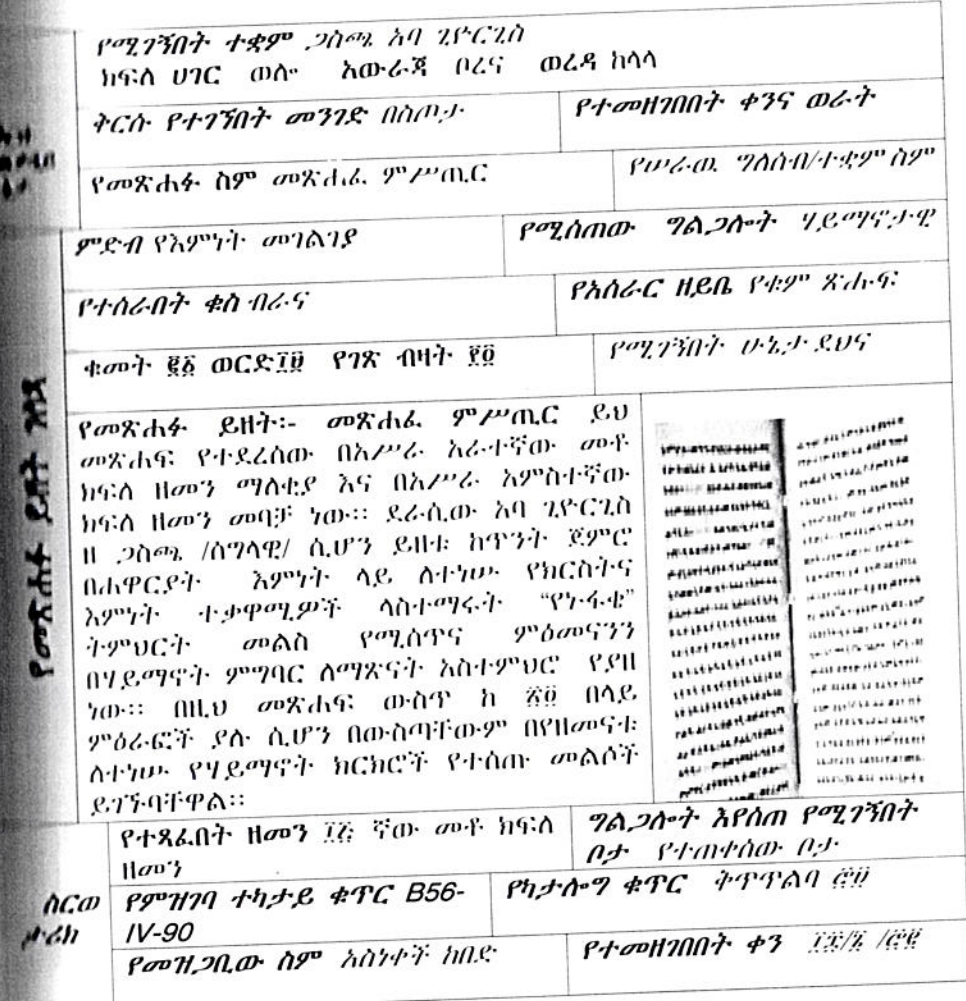 የሚገኝበት ተቋም ጋስጫ አባ ጊዮርጊስ
ክፍለ ሀገር ወሎ አውራጃ ቦረና ወረዳ ከላላ
ቅርሱ የተገኘበት መንገድ በስጦታ
የተመዘገበበት ቀንና ወራት
የመጽሐፉ ስም መጽሐፈ ምሥጢር
የሠራዉ ግለሰብ/ተቋም ስም
ምድብ የእምነት መገልገያ
የሚሰጠው ግልጋሎት ሃይማኖታዊ
የተሰራበት ቁስ ብራና
የአሰራር ዘይቤ የቁም ጽሑፍ
ቁመት ወርድ የገጽ ብዛት
የሚገኝበት ሁኔታ ደህና
የመጽሐፉ ይዘት
የመጽሐፉ ይዘት፡- መጽሐፈ ምሥጢር ይህ
መጽሐፍ የተደረሰው በአሥራ አራተኛው መቶ
ክፍለ ዘመን ማለቂያ እና በአሥራ አምስተኛው
ክፍለ ዘመን መባቻ ነው፡፡ ደራሲው አባ ጊዮርጊስ
ዘ ጋስጫ /ሰግላዊ/ ሲሆን ይዘቱ ከጥንት ጀምሮ
በሐዋርያት እምነት ላይ ለተነሡ የክርስትና
እምነት ተቃዋሚዎች ላስተማሩት “የኑፋቄ”
ትምህርት መልስ የሚሰጥና ምዕመናንን
በሃይማኖት ምግባር ለማጽናት አስተምህሮ የያዘ
ነው፡፡ በዚህ መጽሐፍ ውስጥ ከ በላይ
ምዕራፎች ያሉ ሲሆን በውስጣቸውም በየዘመናቱ
ለተነሡ የሃይማኖት ክርክሮች የተሰጡ መልሶች
ይገኙባቸዋል፡፡
የተጻፈበት ዘመን ፲፭ ኛው መቶ ክፍለ
ዘመን
ግልጋሎት እየሰጠ የሚገኝበት
ቦታ የተጠቀሰው ቦታ
ስርወ
ታሪክ
የምዝገባ ተካታይ ቁጥር B56-
IV-90
የካታሎግ ቁጥር ቅጥጥልባ
የመዝጋቢው ስም አስነቀች ከበድ
የተመዘገበበት ቀን